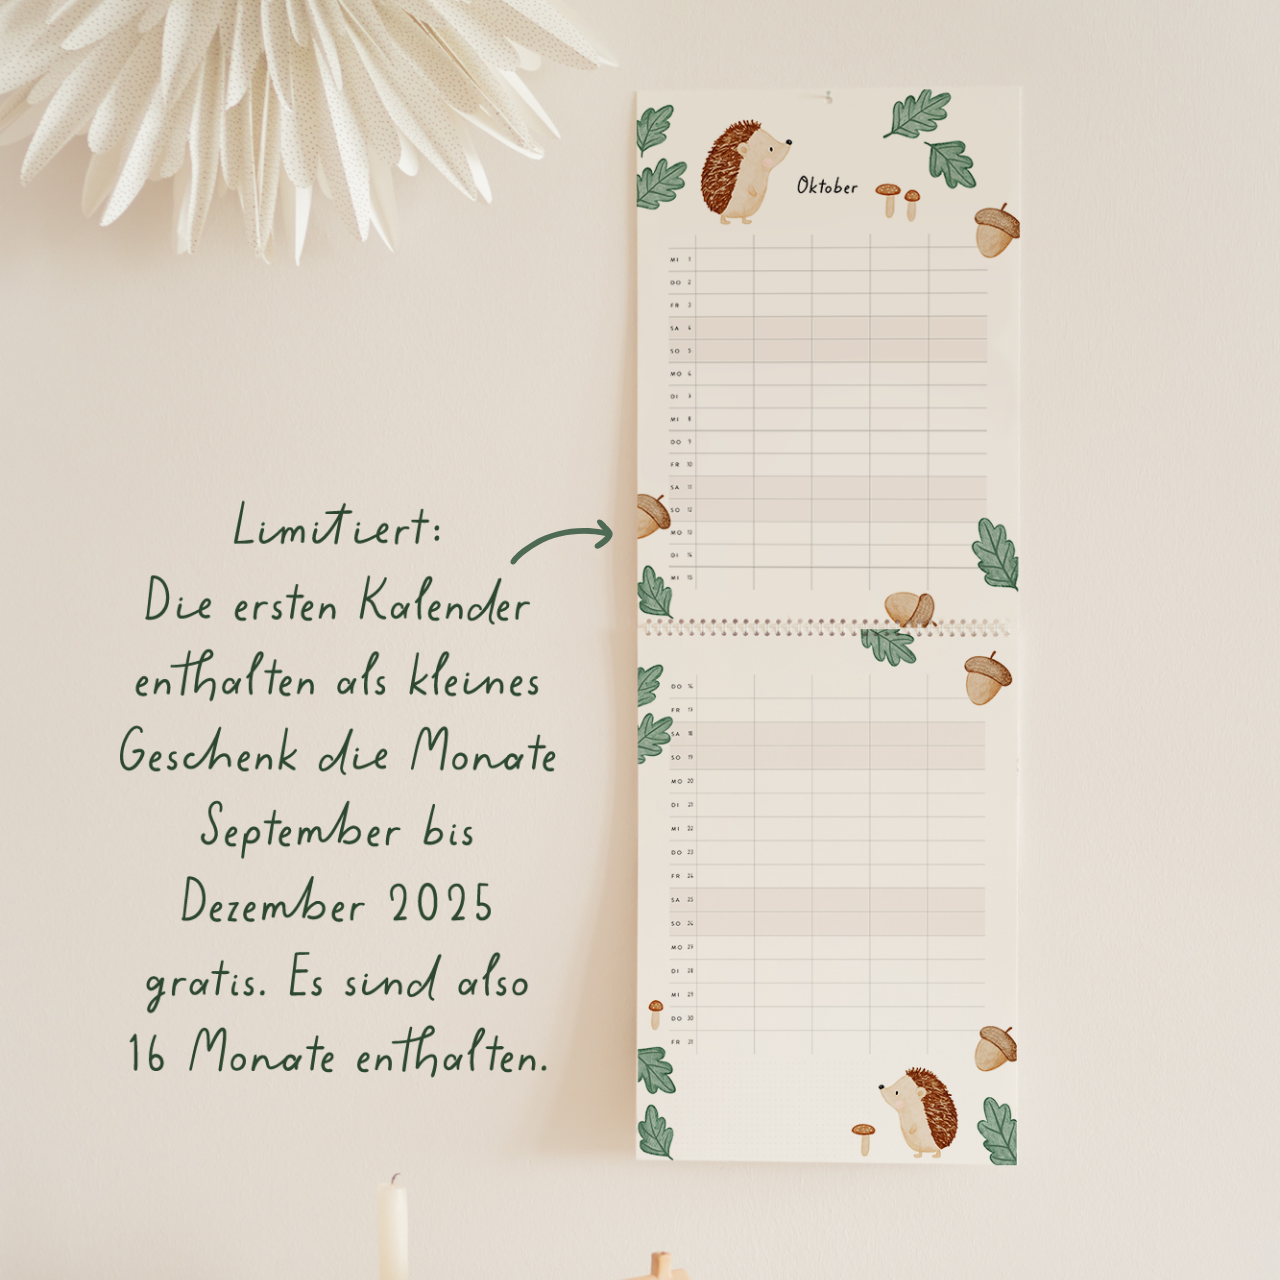 Limitiert:
Die ersten Kalender
enthalten als kleines
Geschenk die Monate
September bis
Dezember 2025
gratis. Es sind also
16 Monate enthalten.
Oktober
MI 1
DO 2
FR 3
SA 4
SO 5
MO 6
DI 7
MI 8
DO 9
FR 10
SA 11
SO 12
MO 13
DI 14
MI 15
DO 16
FR 17
SA 18
SO 19
MO 20
DI 21
MI 22
DO 23
FR 24
SA 25
SO 26
MO 27
DI 28
MI 29
DO 30
FR 31